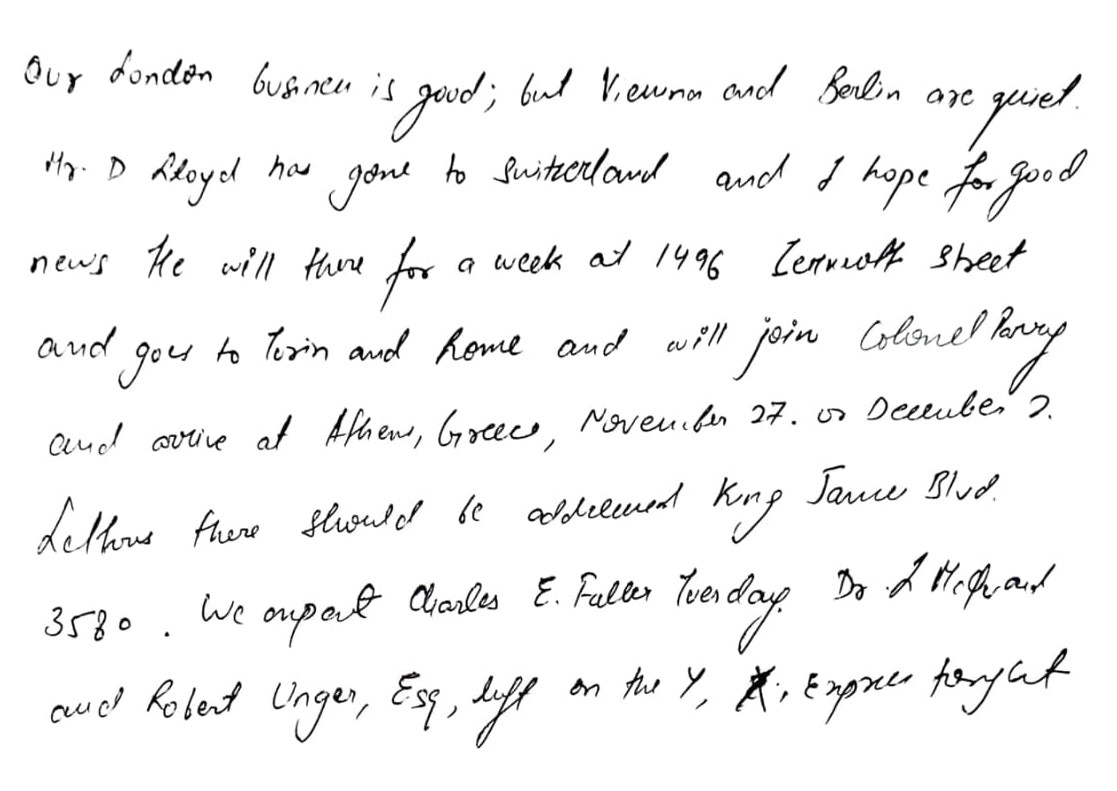 Our London business is good; but Vienna and Berlin are quiet.
Mr. D Lloyd has gone to Switzerland and I hope for good
news He will there for a week at 1496 Zermott Street
and goes to Turin and Rome and will join Colonel Parry
and arrive at Athens, Greece, November 27. or December 2.
Letters there should be addressed King James Blvd.
3580. We expect Charles E. Fuller Tuesday. Dr L McQuaid
and Robert Unger, Esq, left on the Y, X, Express tonight